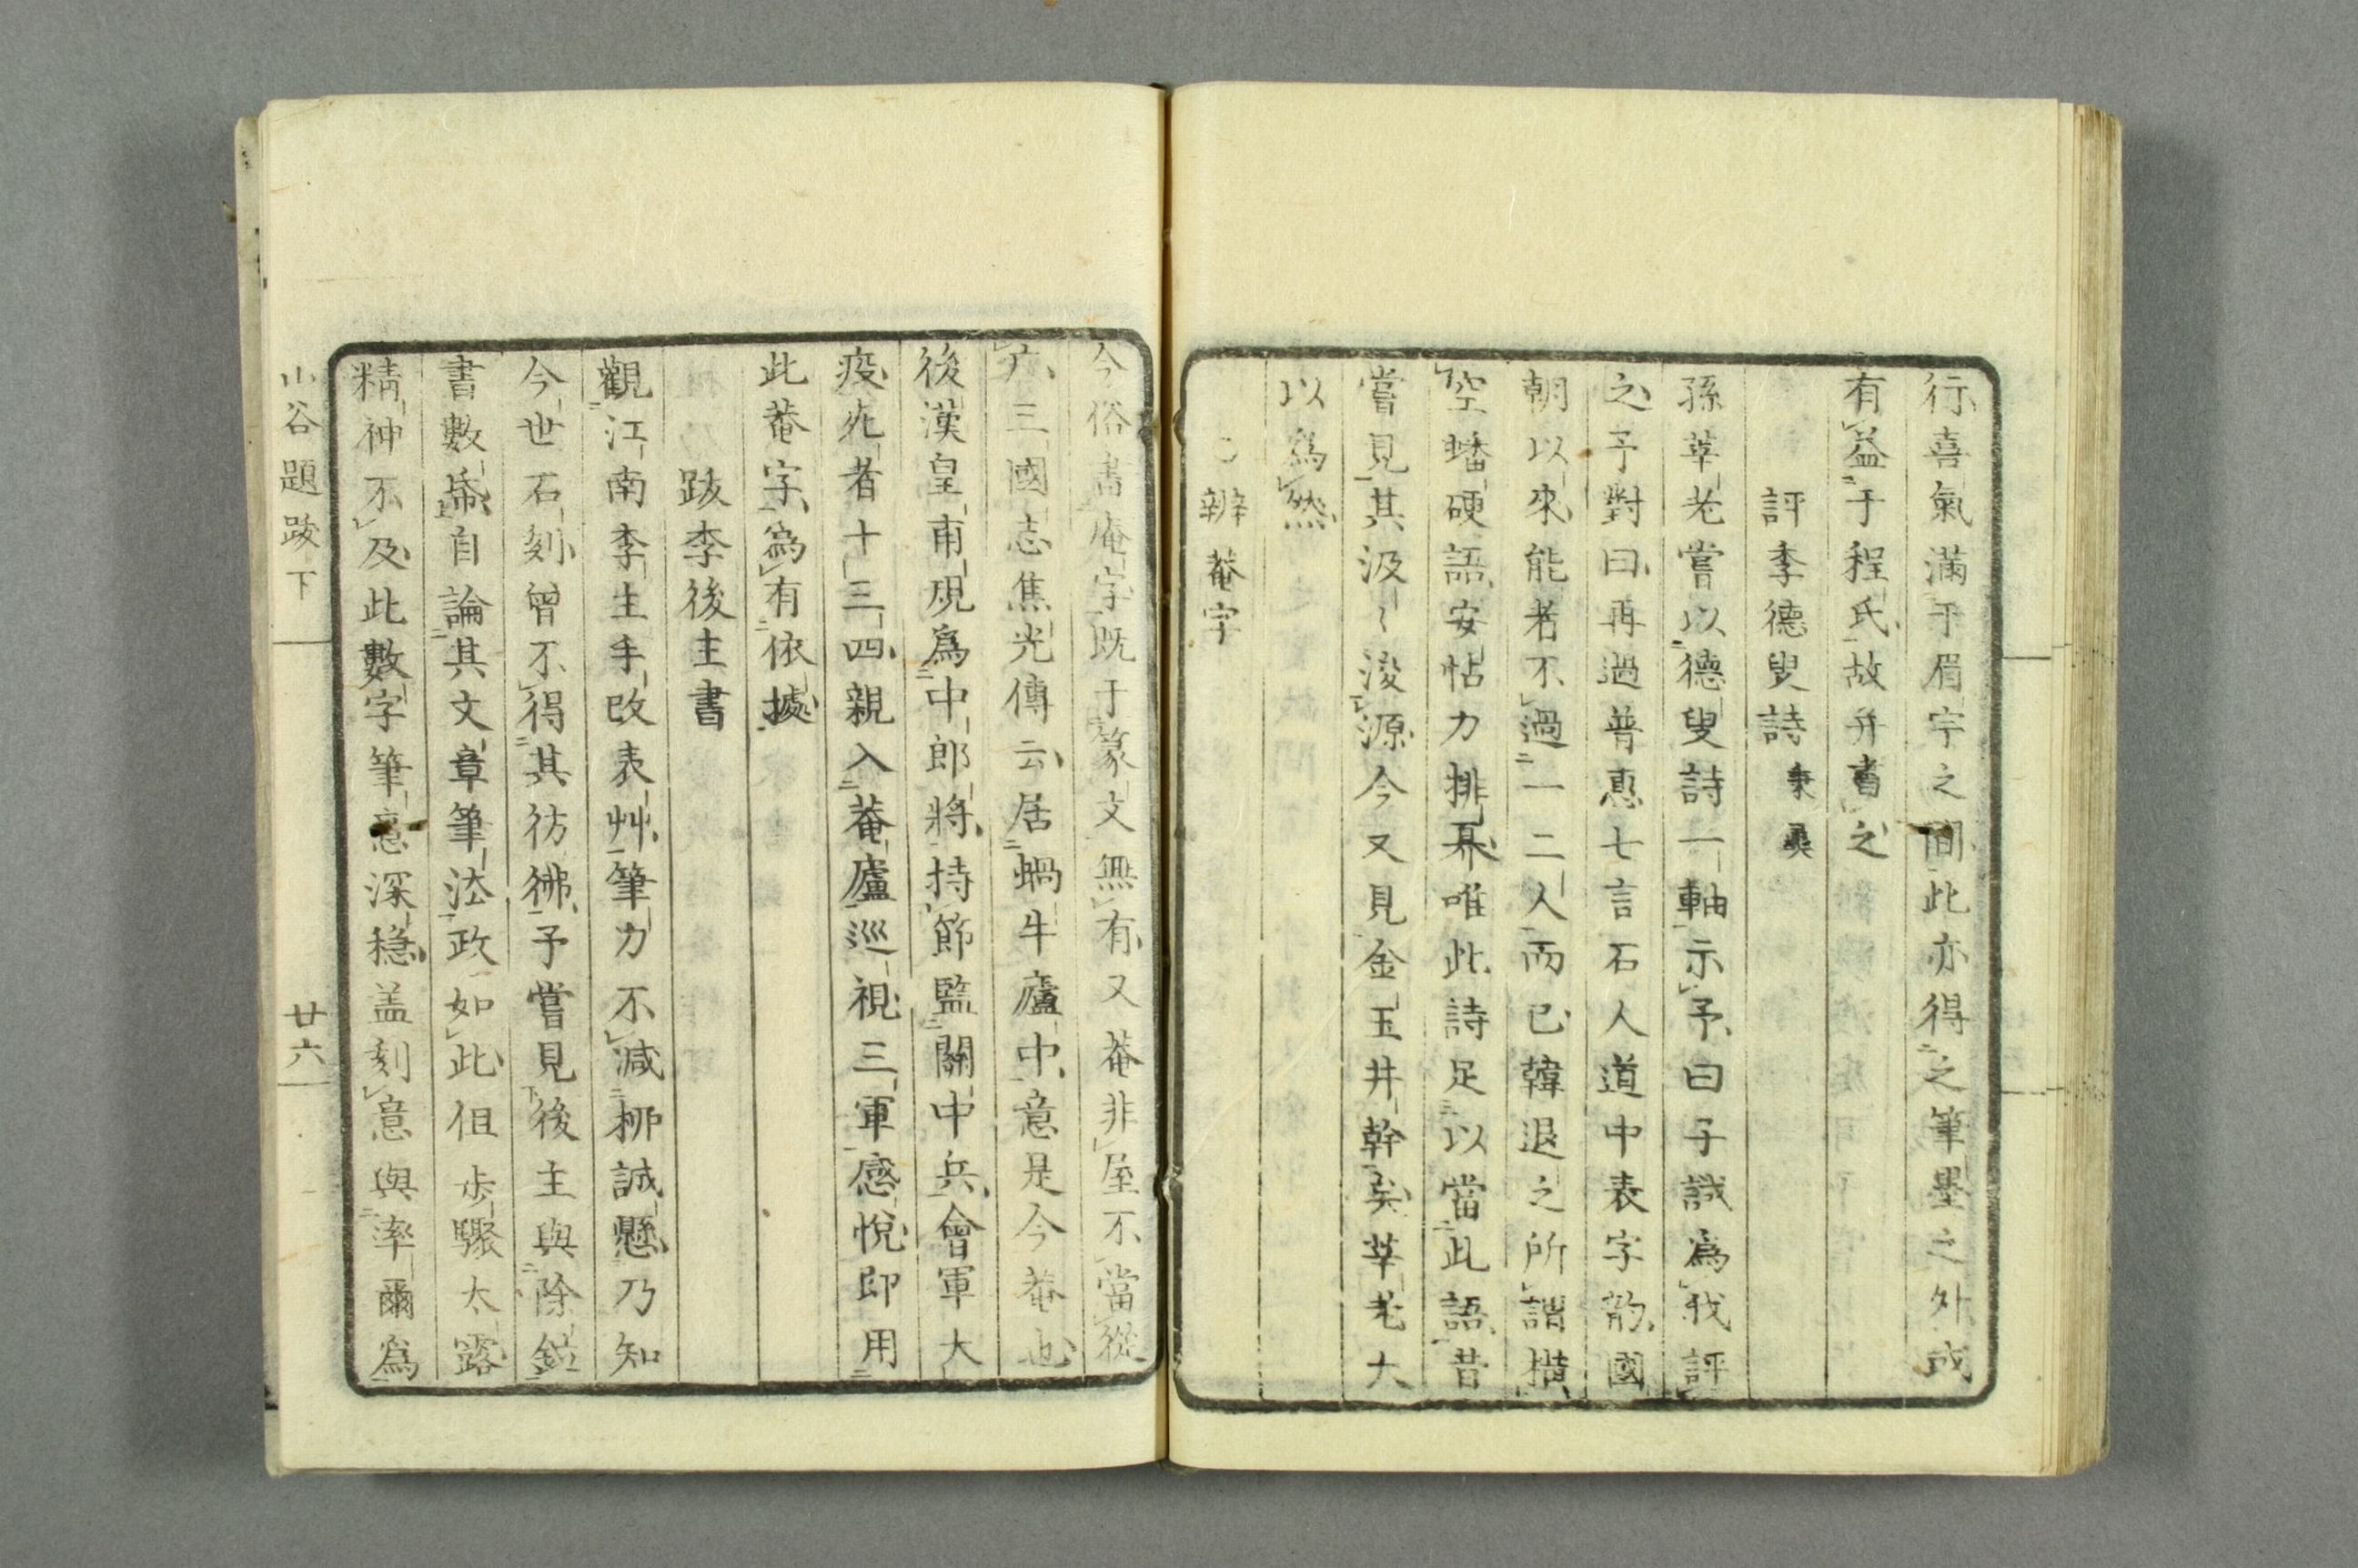 行喜氣滿于眉宇之間此亦得之筆墨之外或
有益于程氏故并書之
評李德叟詩秉彛
孫莘老嘗以德叟詩一軸示予曰子試爲我評
之予對曰再過普惠七言石人道中表字韵國
朝以來能者不過一二人而已韓退之所謂橫
空蟠硬語安帖力排奡唯此詩足以當此語昔
嘗見其汲〻浚源今又見金玉井幹矣莘老大
以爲然
辨菴字
今俗書庵字既于篆文無有又菴非屋不當從
广三國志焦光傳云居蝸牛廬中意是今菴也
後漢皇甫規爲中郎將持節監關中兵會軍大
疫死者十三四親入菴廬巡視三軍感悅即用
此菴字爲有依據
跋李後主書
觀江南李主手改表艸筆力不减柳誠懸乃知
今世石刻曾不得其彷彿予嘗見後主與除鉉
書數帋自論其文章筆法政如此但步驟太露
精神不及此數字筆意深穩盖刻意與率爾爲
山谷題跋下
廿六